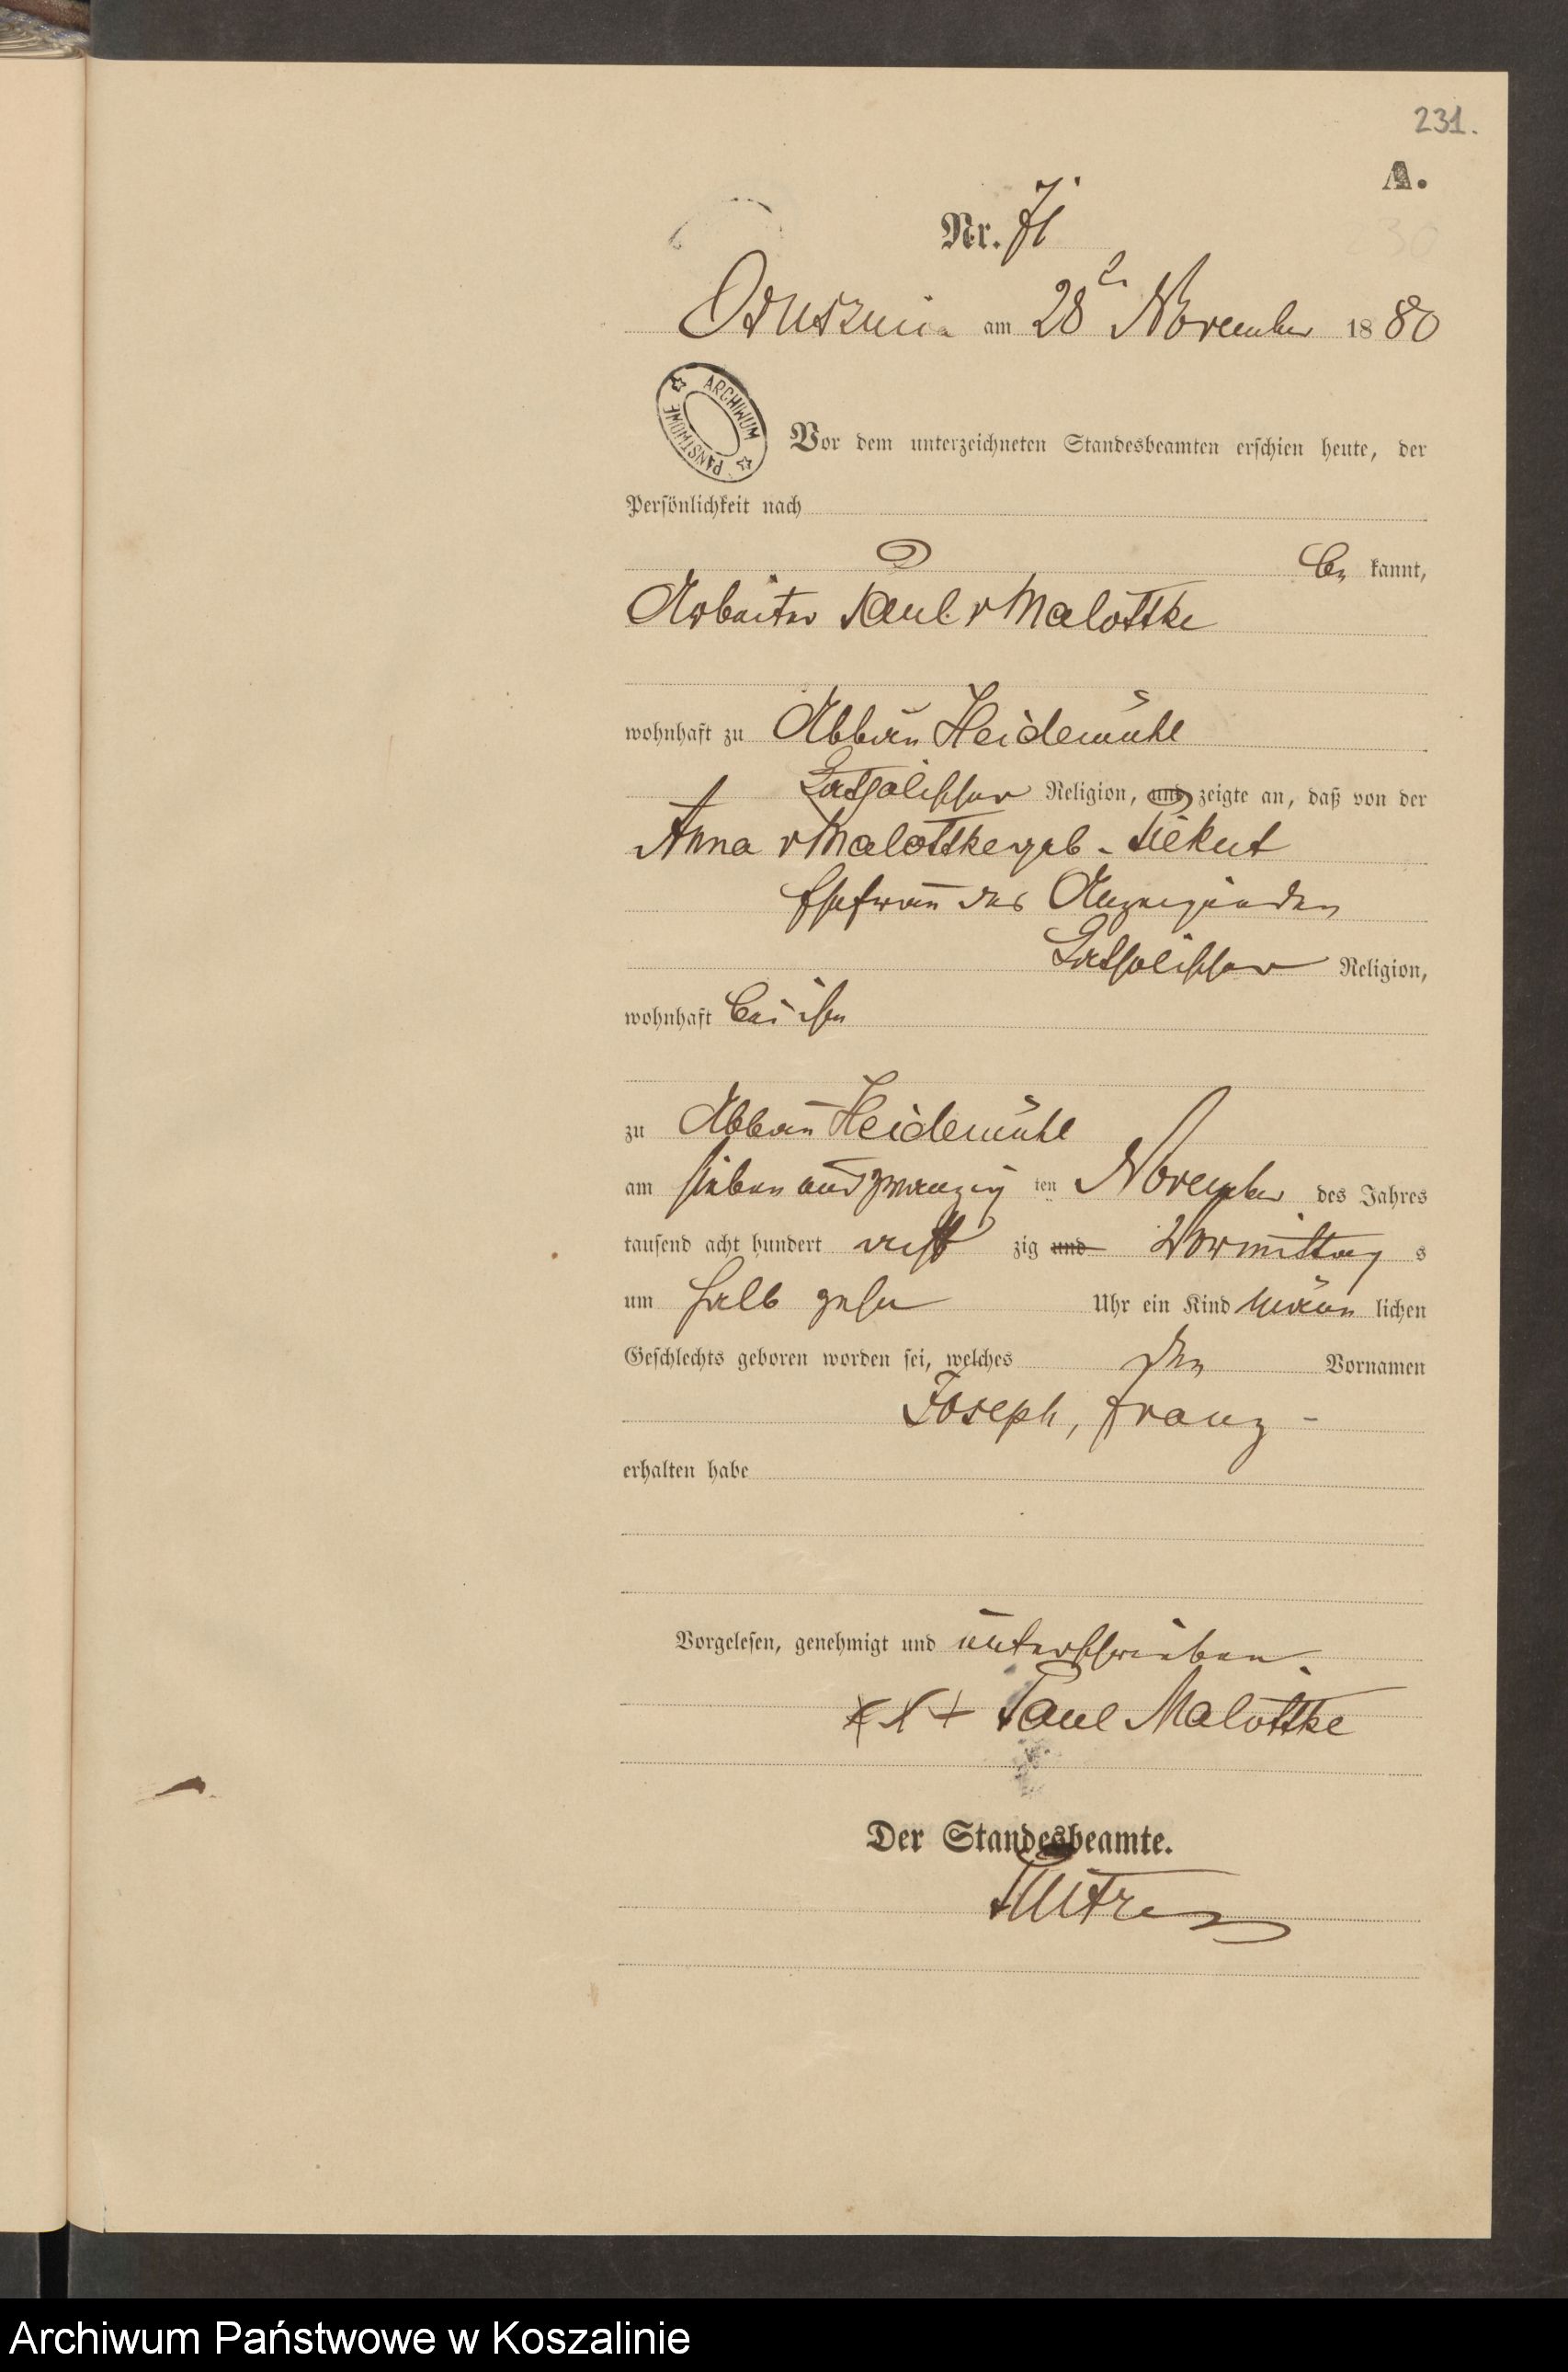 231.
A.
Nr. 71
Osuszniza am 28 November 1880
ARCHIWUM PAŃSTWOWE
Vor dem unterzeichneten Standesbeamten erschien heute, der
Persönlichkeit nach
be kannt,
Arbeiter Paul v Malottke
wohnhaft zu Abbau Heidemühl
katholischer Religion, und zeigte an, daß von der
Anna v Malottke geb. Piekut
Ehefrau des Anzeigenden
katholischer Religion,
wohnhaft bei ihm
zu Abbau Heidemühl
am sieben und zwanzig ten November des Jahres
tausend acht hundert acht zig und Vormittag s
um halb zehn Uhr ein Kind männ lichen
Geschlechts geboren worden sei, welches den Vornamen
Joseph, Franz -
erhalten habe
Vorgelesen, genehmigt und unterschrieben.
xx+ Paul Malottke
Der Standesbeamte.
Archiwum Państwowe w Koszalinie